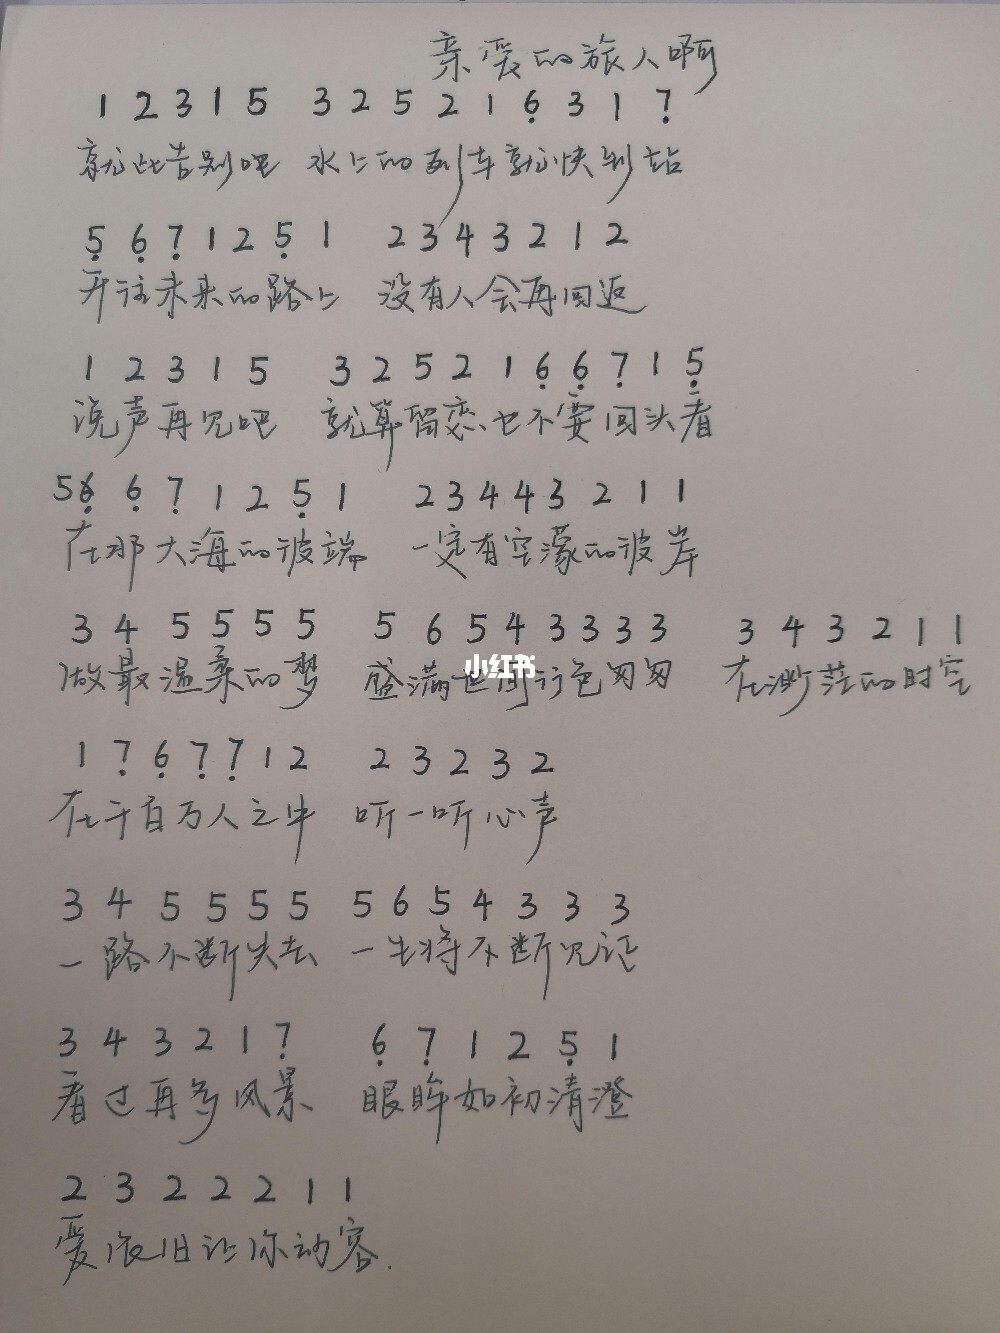 亲爱的旅人啊
1 2 3 1 5 3 2 5 2 1 6̣ 3 1 7̣
就此告别吧 水上的列车就快到站
5̣ 6̣ 7̣ 1 2 5̣ 1 2 3 4 3 2 1 2
开往未来的路上 没有人会再回返
1 2 3 1 5 3 2 5 2 1 6̣ 6̣ 7̣ 1 5̣
说声再见吧 就算留恋也不要回头看
5 6̣ 6̣ 7̣ 1 2 5̣ 1 2 3 4 4 3 2 1 1
在那大海的彼端 一定有空濛的彼岸
3 4 5 5 5 5 5 6 5 4 3 3 3 3 3 4 3 2 1 1
做最温柔的梦 盛满世间行色匆匆 在渺茫的时空
小红书
1 7̣ 6̣ 7̣ 7̣ 1 2 2 3 2 3 2
在千百万人之中 听一听心声
3 4 5 5 5 5 5 6 5 4 3 3 3
一路不断失去 一生将不断见证
3 4 3 2 1 7̣ 6̣ 7̣ 1 2 5̣ 1
看过再多风景 眼眸如初清澄
2 3 2 2 2 1 1
爱依旧让你动容.